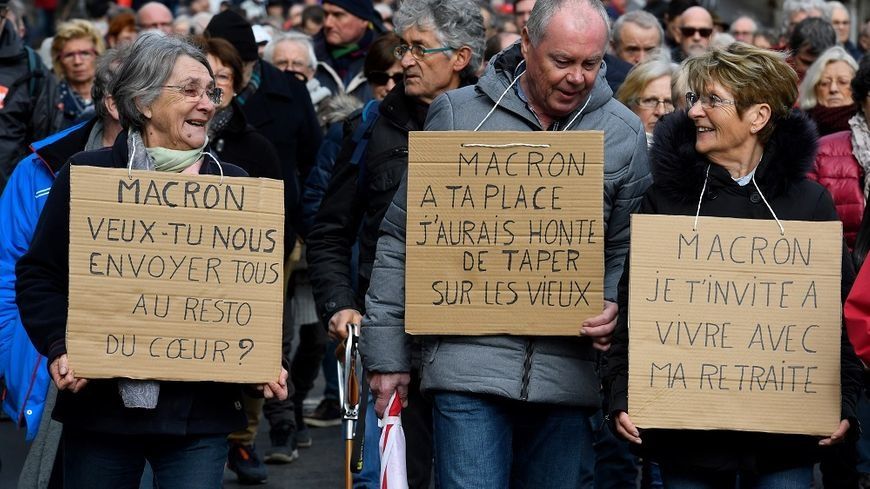 MACRON
VEUX-TU NOUS
ENVOYER TOUS
AU RESTO
DU CŒUR ?
MACRON
A TA PLACE
J'AURAIS HONTE
DE TAPER
SUR LES VIEUX
MACRON
JE T'INVITE A
VIVRE AVEC
MA RETRAITE